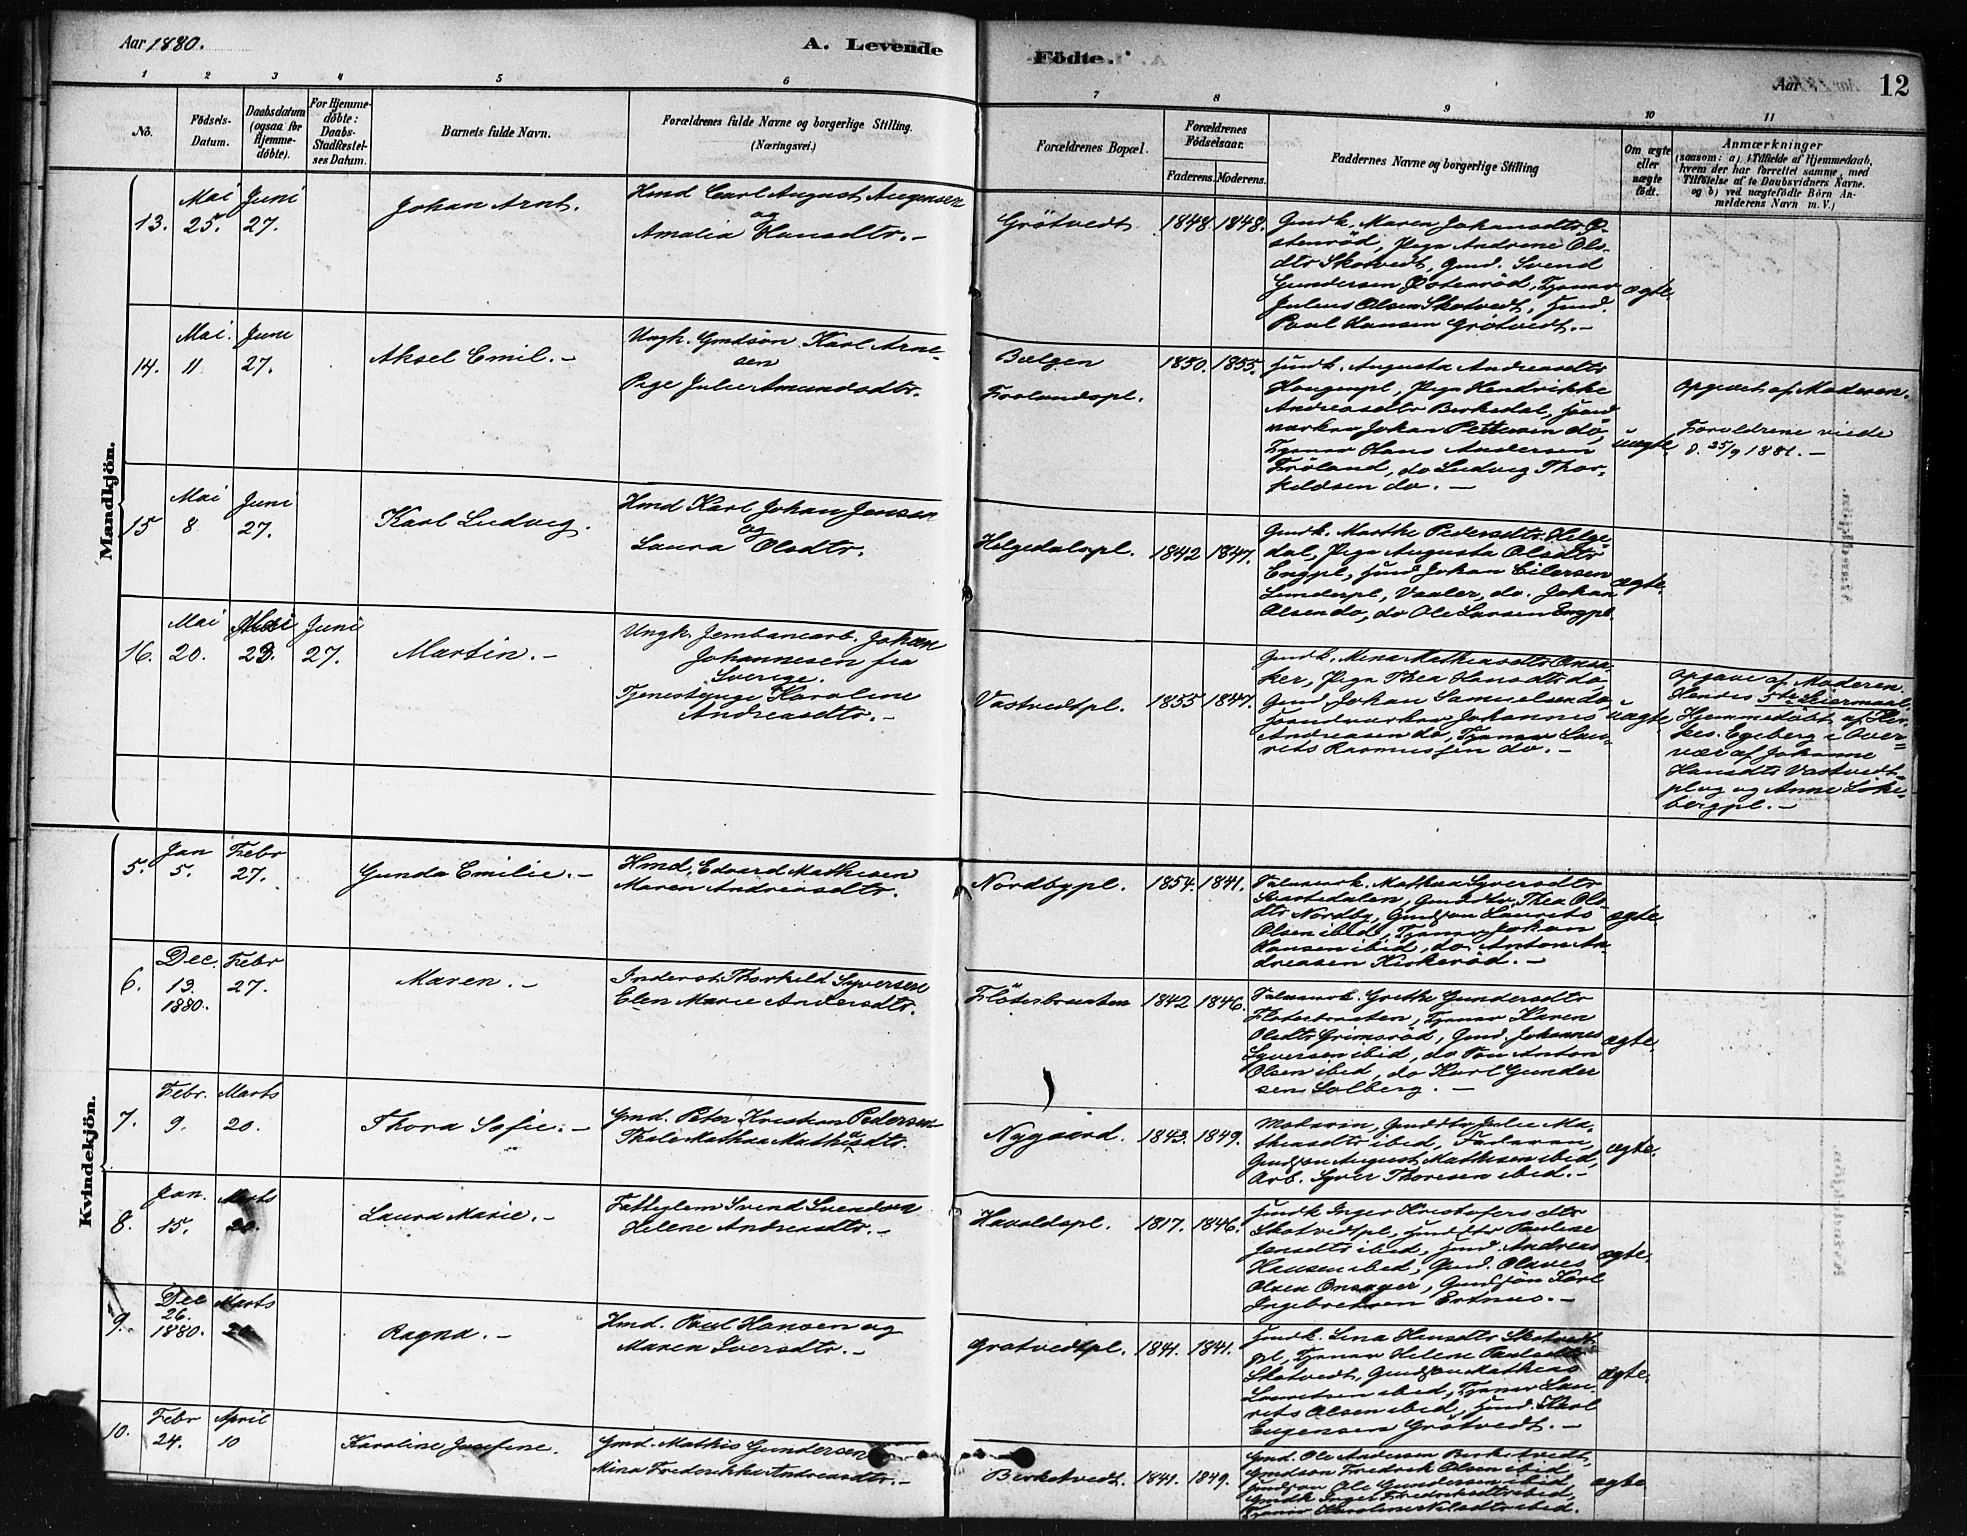 Aar 1880.
A. Levende
Födte.
Aar
12
1
2
3
4
5
6
7
8
9
10
11
No.
Födsels-
Datum.
Daabsdatum
(ogsaa for
Hjemme-
döbte).
For Hjemme-
döbte:
Daabs-
Stadfæstel-
ses Datum.
Barnets fulde Navn.
Forældrenes fulde Navne og borgerlige Stilling.
(Næringsvei.)
Forældrenes Bopæl.
Forældrenes
Födselsaar.
Faderens.
Moderens.
Faddernes Navne og borgerlige Stilling
Om ægte
eller
uægte
födt.
Anmærkninger
(saasom: a) i Tilfælde af Hjemmedaab,
hvem der har forrettet samme, med
Tilföielse af to Daabsvidners Navne.
og b) ved uægtefödte Börn An-
melderens Navn m. V.)
Mandkjön.
13.
Mai
25.
Juni
27.
Johan Arnt.
Hmd Carl August Augensen
og
Amalia Hansdtr. -
Grötvedt
1848
1848.
Gmdk. Maren Johansdtr Ö-
stenröd, Pige Andrine Ols-
dtr Skotvedt, Gmd. Svend
Gundersen Östenröd, Tjener
Julius Olsen Skotvedt, Hmd.
Paul Hansen Grötvedt. -
ægte.
14.
Mai.
11
Juni
27.
Aksel Emil. -
Ungk. Gmdsön Karl Arne-
sen
Pige Julie Amundsdtr.
Bælgen
Frolandspl.
1850.
1855.
Hmdk. Augusta Andreasdtr
Haugenpl, Pige Hendrikke
Andreasdtr Birkedal, Haand
værker Johan Pettersen do,
Tjener Hans Andersen
Fröland, do Ludvig Thor-
keldsen do. -
uægte
Opgivet af Moderen.
Forældrene viede
d. 25/9 1881. -
15
Mai
8
Juni
27.
Karl Ludvig.
Hmd Karl Johan Jensen
og
Laura Olsdtr.
Helgedalspl.
1842
1847.
Gmdk. Marthe Pedersdtr Helge
dal, Pige Augusta Olsdtr
Engpl, Hmd Johan Eilersen
Lunderpl, Vaaler, do. Johan
Olsen do, do Ole Larsen Engpl.
ægte.
16.
Mai
20.
Mai
23.
Juni
27.
Martin. -
Ungk. Jernbanearb. Johan
Johannesen fra
Sverige.
Tjenestepige Karoline
Andreasdtr. -
Vastvedtpl.
1855
1847.
Gmdk. Mina Mathiasdtr Onsa-
ker, Pige Thea Hansdtr do,
Gmd Johan Samuelsen do,
Haandværker Johannes
Andreasen do, Tjener Lau-
rits Rasmussen do. -
uægte
Opgave af Moderen
Hendes 5te Leiermaal.
Hjemmedöbt af Kir-
kes. Egeberg i Over-
vær af Johanne
Hansdtr Vastvedt-
plag og Anne Löke-
bergpl. -
Kvindekjön.
5.
Jan
5.
Febr
27.
Gunda Emilie. -
Hmd, Edvard Mathisen
Maren Andreasdtr.
Nordbypl.
1854.
1841.
Mathea Syversdtr
Svartedalen, Gmddtr Thea Ols-
dtr Nordby, Gmdsön Laurits
Olsen ibid, Tjener Johan
Hansen ibid, do. Anton An-
dreasen Kirkeröd. -
ægte.
6.
Dec.
13.
1880.
Febr
27.
Maren. -
Inderst. Thorkeld Syversen
Elen Marie Andersdtr.
Flöterbraaten
1842
1846.
Grethe Gundersdtr
Flöterbraaten, Tjener Karen
Olsdtr Grimsröd, Gmd. Johannes
Syversen ibid, do Anton
Olsen ibid, do Karl Gunder
sen Solberg. -
ægte.
7.
Febr.
9.
Marts
20.
Thora Sofie. -
Gmd. Peter Kristian Pedersen
Thale Mathea Mathiasdtr.
Nygaard.
1843.
1849.
Moderen, Gmddtr Julie Ma-
thiasdtr ibid, Faderen,
Gmdsön August Mathisen ibid,
Arb. Syver Thoresen ibid. -
ægte.
8.
Jan.
15.
Marts
20.
Laura Marie. -
Fattiglem Svend Svendsen
Helene Andreasdtr. -
Haraldspl.
1817.
1846.
Hmdk Inger Kristofersdtr
Skotvedtpl, Hmddtr Pauline
Jensdtr ibid, Hmd. Andreas
Hansen ibid, Gmd. Olaves
Olsen Onsager, Gmdsön Karl
Ingebretsen Ertnus. -
ægte.
9.
Dec
26.
1880.
Marts
20
Ragna. -
Hmd. Paul Hansen og
Maren Iversdtr. -
Grotvedtpl.
1841.
1841.
Hmdk. Lina Hansdtr Skotvedt
pl, Tjener Helene Paulsdtr
Skotvedt, Gmdsön Mathias
Lauritsen ibid, Tjener Lau-
rits Olsen ibid, Hmd. Karl
Eugensen Grötvedt. -
ægte.
10.
Febr
24.
April
10
Karoline Josefine.
Gmd. Mathis Gundersen
Mina Frederikke Andreasdtr. -
Birketvedt.
1841.
1849.
Gmd. Ole Andersen Birketvedt,
Gmdsön Fredrik Olsen ibid,
Gmdsön Ole Gundersen ibid
Gmdk Inger Fredriksdtr ibid,
Tjener Karoline Nilsdtr ibid.
ægte